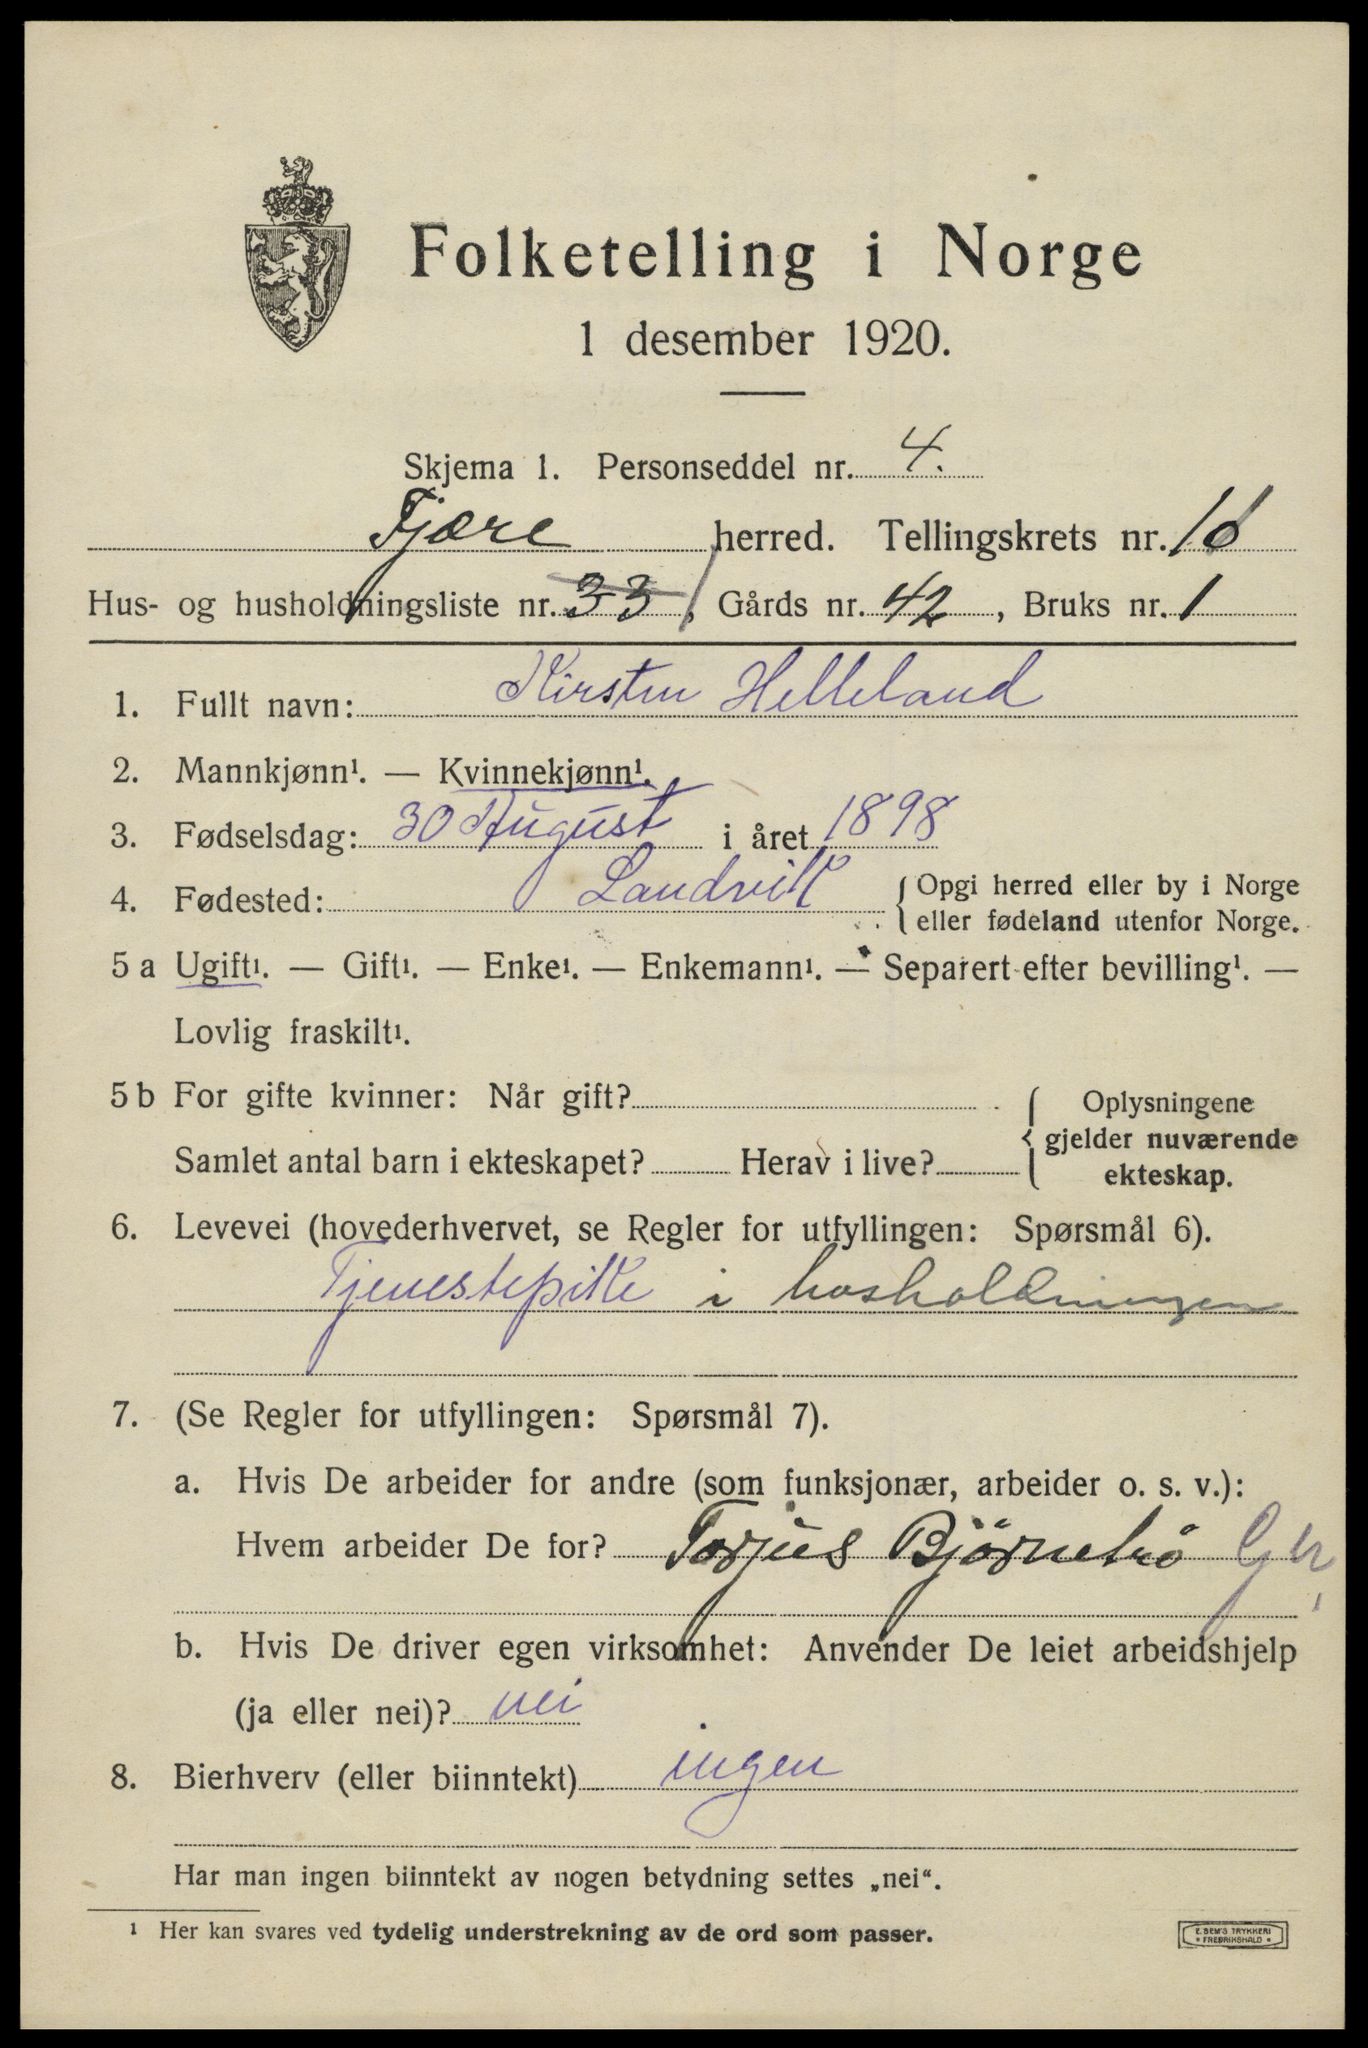 Folketelling i Norge
1 desember 1920.
Skjema 1. Personseddel nr. 4.
Fjære herred. Tellingskrets nr. 10
Hus- og husholdningsliste nr. 33 1, Gårds nr. 42, Bruks nr. 1
1. Fullt navn: Kirsten Helleland
2. Mannkjønn¹. — Kvinnekjønn¹.
3. Fødselsdag: 30 August i året 1898
4. Fødested: Landvik { Opgi herred eller by i Norge
eller fødeland utenfor Norge.
5 a Ugift¹. — Gift¹. — Enke¹. — Enkemann¹. — Separert efter bevilling¹. —
Lovlig fraskilt¹.
5 b For gifte kvinner: Når gift? { Oplysningene
gjelder nuværende
Samlet antal barn i ekteskapet? Herav i live?
ekteskap.
6. Levevei (hovederhvervet, se Regler for utfyllingen: Spørsmål 6).
Tjenestepike i husholdningen
7. (Se Regler for utfyllingen: Spørsmål 7).
a. Hvis De arbeider for andre (som funksjonær, arbeider o. s. v.):
Hvem arbeider De for? Torjus Bjørnebrö
b. Hvis De driver egen virksomhet: Anvender De leiet arbeidshjelp
(ja eller nei)? nei
8. Bierhverv (eller biinntekt) ingen
Har man ingen biinntekt av nogen betydning settes „nei“.
¹ Her kan svares ved tydelig understrekning av de ord som passer.
E. SEM'S TRYKKERI
• FREDRIKSHALD •